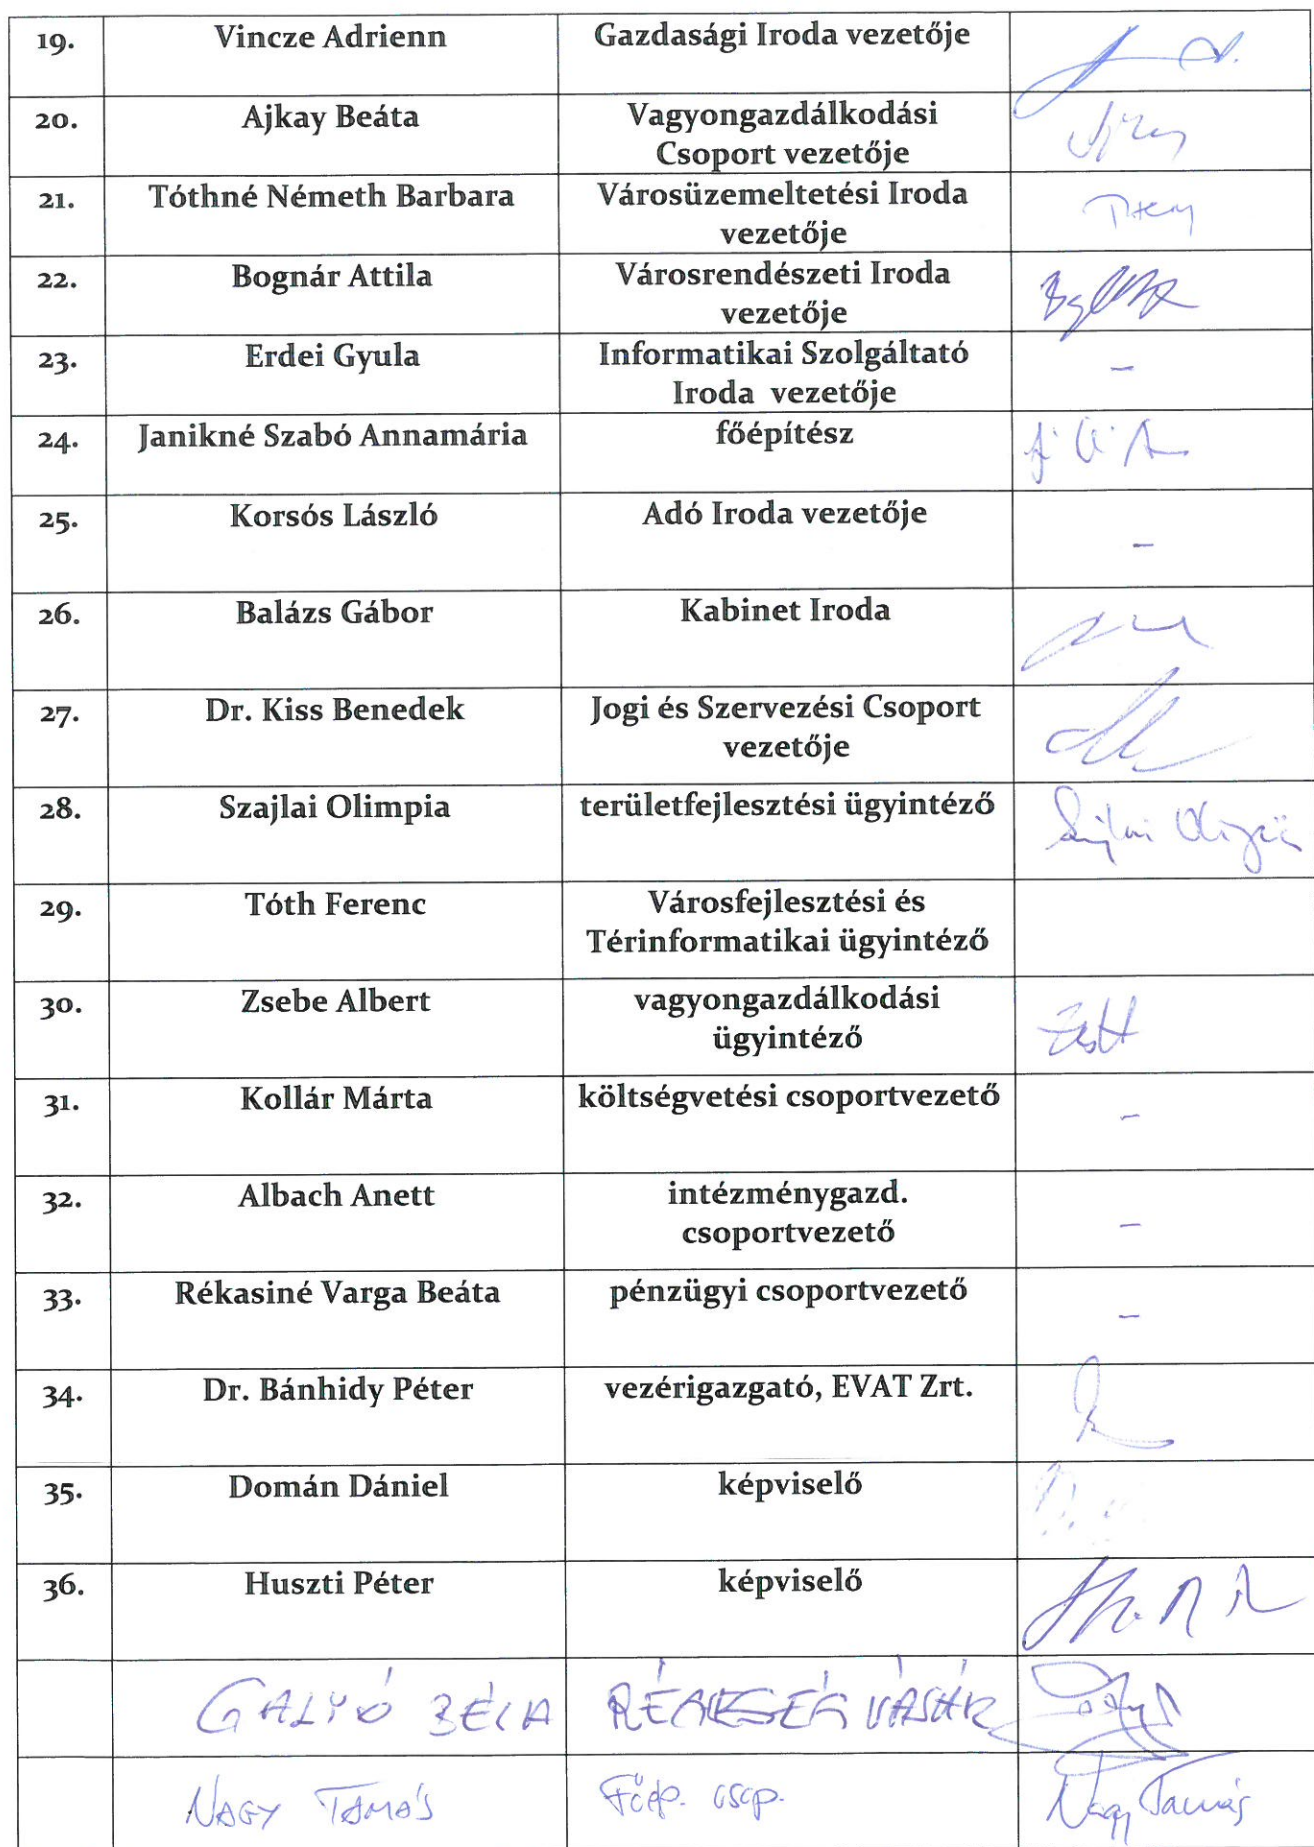 19. Vincze Adrienn Gazdasági Iroda vezetője
20. Ajkay Beáta Vagyongazdálkodási
Csoport vezetője
21. Tóthné Németh Barbara Városüzemeltetési Iroda
vezetője
22. Bognár Attila Városrendészeti Iroda
vezetője
23. Erdei Gyula Informatikai Szolgáltató
Iroda vezetője
–
24. Janikné Szabó Annamária főépítész
25. Korsós László Adó Iroda vezetője
–
26. Balázs Gábor Kabinet Iroda
27. Dr. Kiss Benedek Jogi és Szervezési Csoport
vezetője
28. Szajlai Olimpia területfejlesztési ügyintéző
Szajlai Olimpia
29. Tóth Ferenc Városfejlesztési és
Térinformatikai ügyintéző
30. Zsebe Albert vagyongazdálkodási
ügyintéző
31. Kollár Márta költségvetési csoportvezető
–
32. Albach Anett intézménygazd.
csoportvezető
–
33. Rékasiné Varga Beáta pénzügyi csoportvezető
–
34. Dr. Bánhidy Péter vezérigazgató, EVAT Zrt.
35. Domán Dániel képviselő
36. Huszti Péter képviselő
GALYÓ BÉLA RÉGISÉG VÁSÁR
NAGY TAMÁS Főép. csop. Nagy Tamás